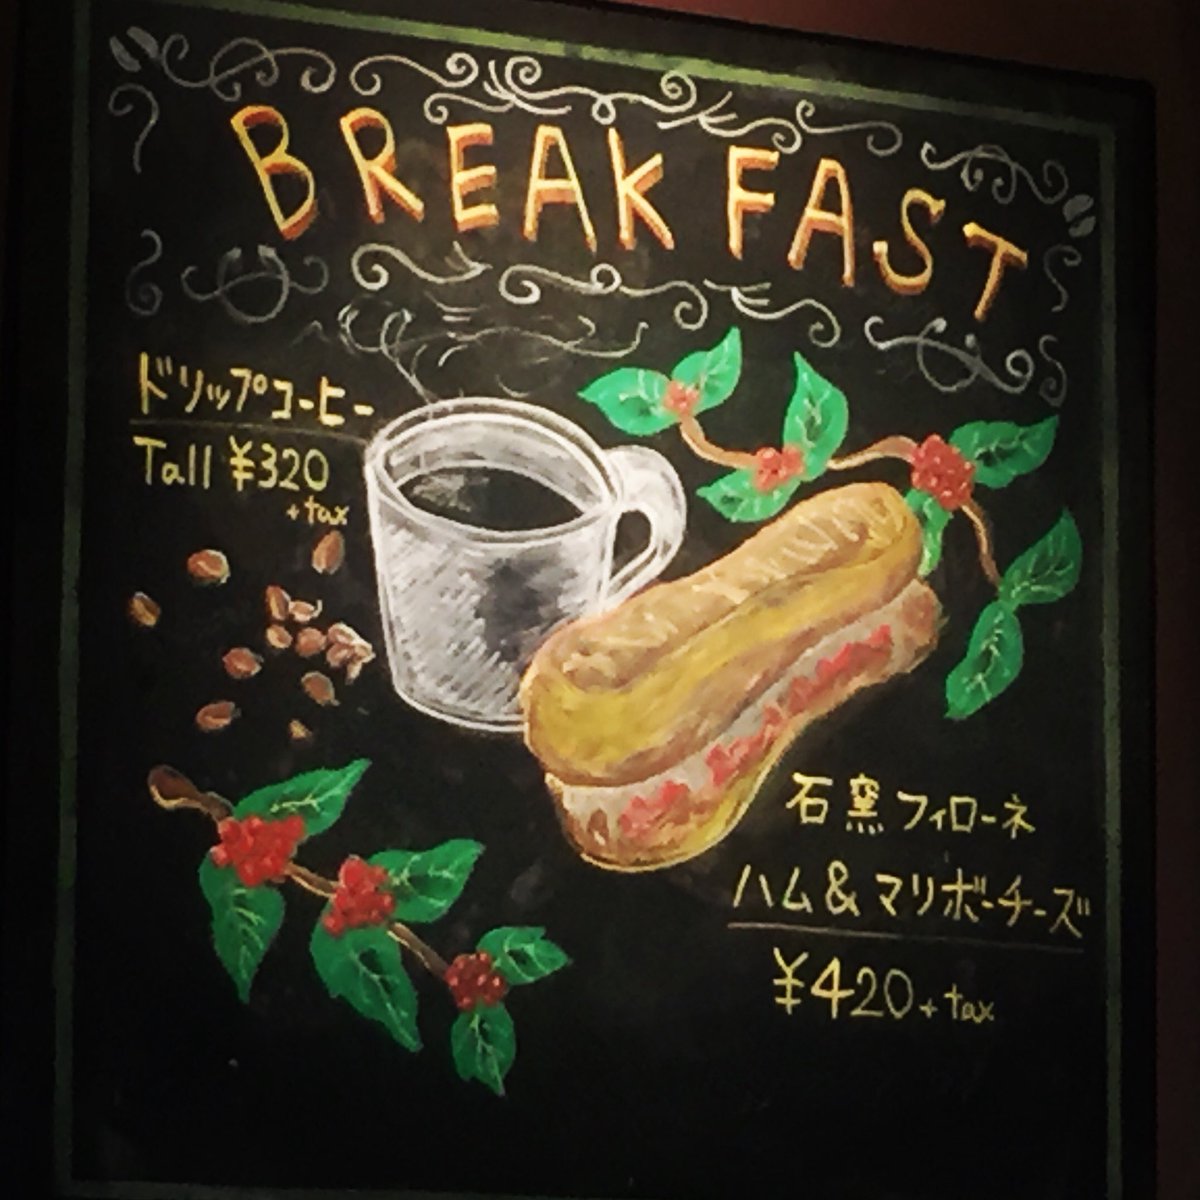 BREAKFAST
ドリップコーヒー
Tall ¥320
+tax
石窯フィローネ
ハム&マリボーチーズ
¥420+tax